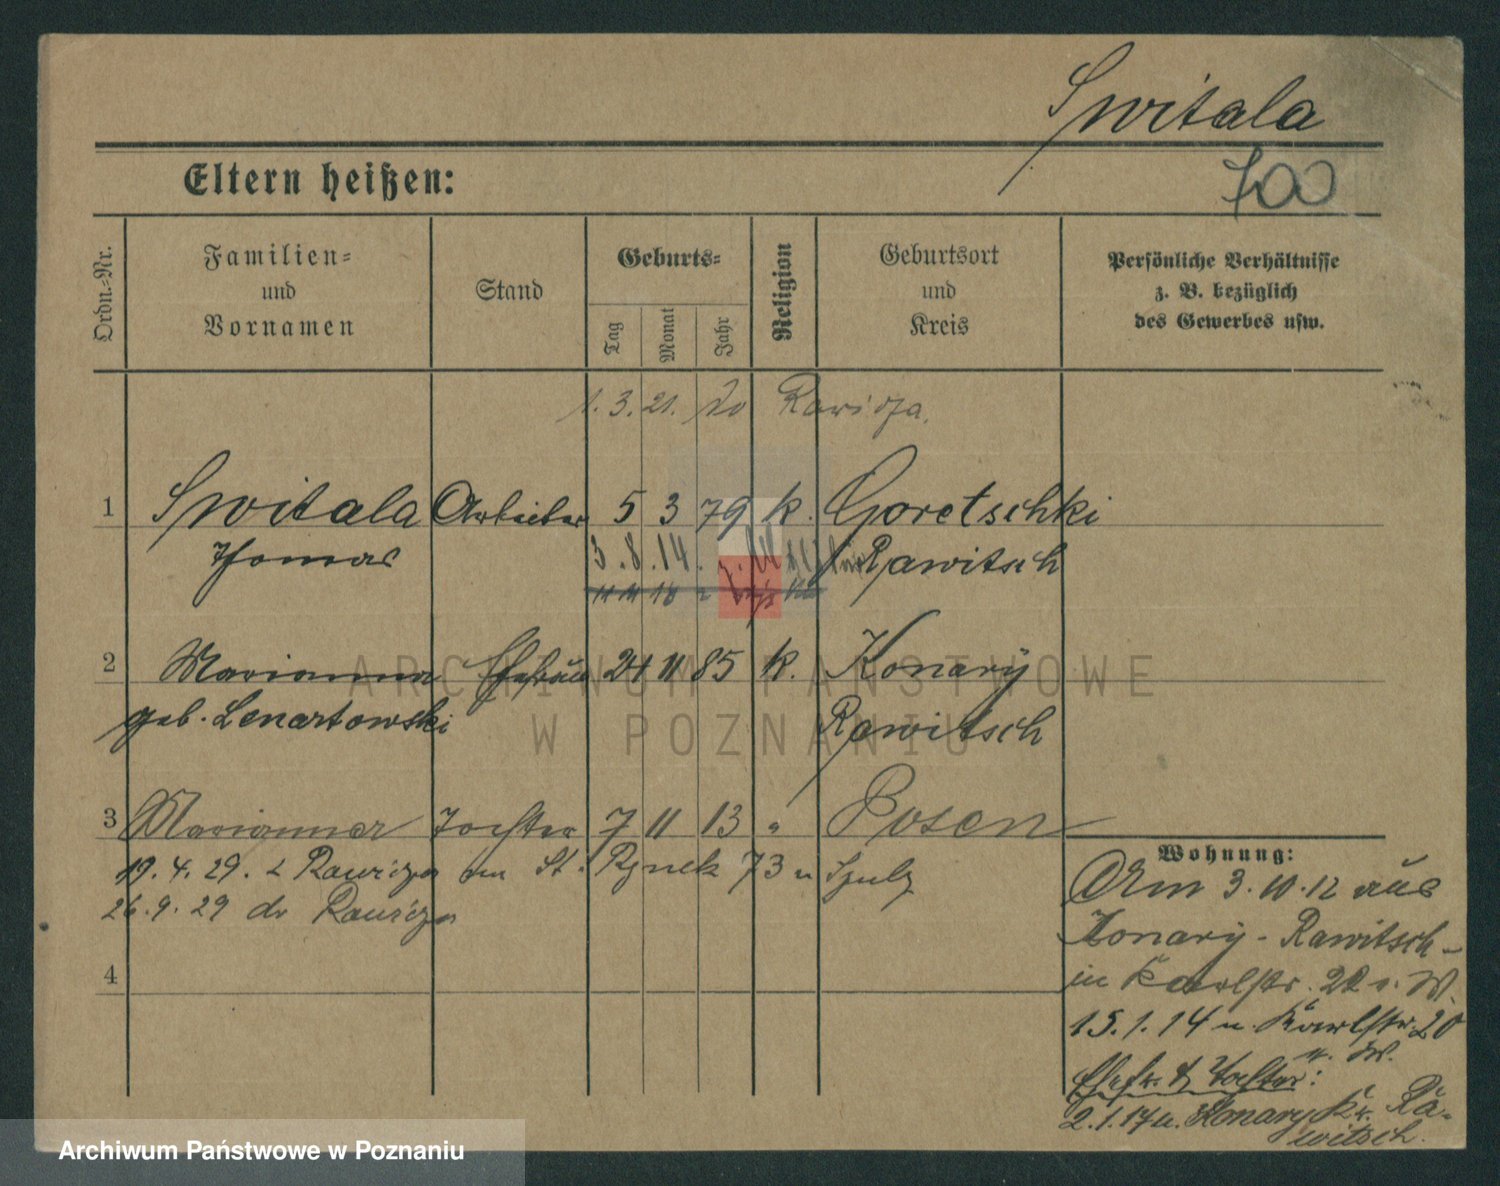 Switala
700
Eltern heißen:
Ordn.-Nr.
Familien- und Vornamen
Stand
Geburts-
Tag
Monat
Jahr
Religion
Geburtsort und Kreis
Persönliche Verhältnisse z. B. bezüglich des Gewerbes usw.
1.3.21. do Rawicza.
1 Switala Arbeiter 5 3 79 k. Goretschki
Thomas Rawitsch
3.8.14.
2 Marianna Ehefrau 24 11 85 k. Konary
geb. Lenartowski Rawitsch
3 Marianna Tochter 7 11 13 " Posen
19.4.29. z Rawicza St. Rynek 73 u Szulz
26.9.29 do Rawicza
4
Wohnung:
Am 3.10.12 aus
Konary - Rawitsch -
in Karlstr. 22 b. W.
15.1.14 n. Karlstr. 20
b. W.
Ehefr. & Tochter:
2.1.17 n. Konary Kr. Ra-
witsch.
ARCHIWUM PAŃSTWOWE
W POZNANIU
Archiwum Państwowe w Poznaniu